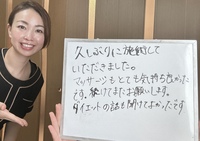 久しぶりに施術して
いただきました。
マッサージもとても気持ち良かった
です。続けてまたお願いします。
ダイエットの話も聞けてよかったです